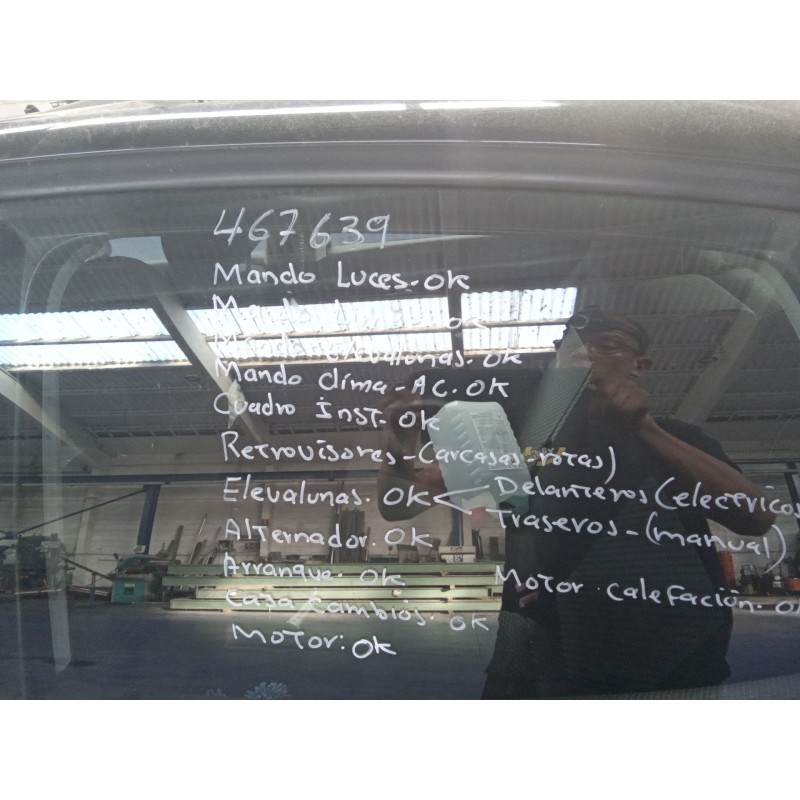 467639
Mando Luces. OK
Mando OK
Mando elevalunas. OK
Mando Clima - AC. OK
Cuadro inst. OK
Retrovisores - (carcasas - rotas)
Elevalunas. OK < Delanteros (electricos
Traseros - (manual)
Alternador. OK
Arranque. OK
Motor. calefación. OK
Caja Cambios. OK
Motor: OK